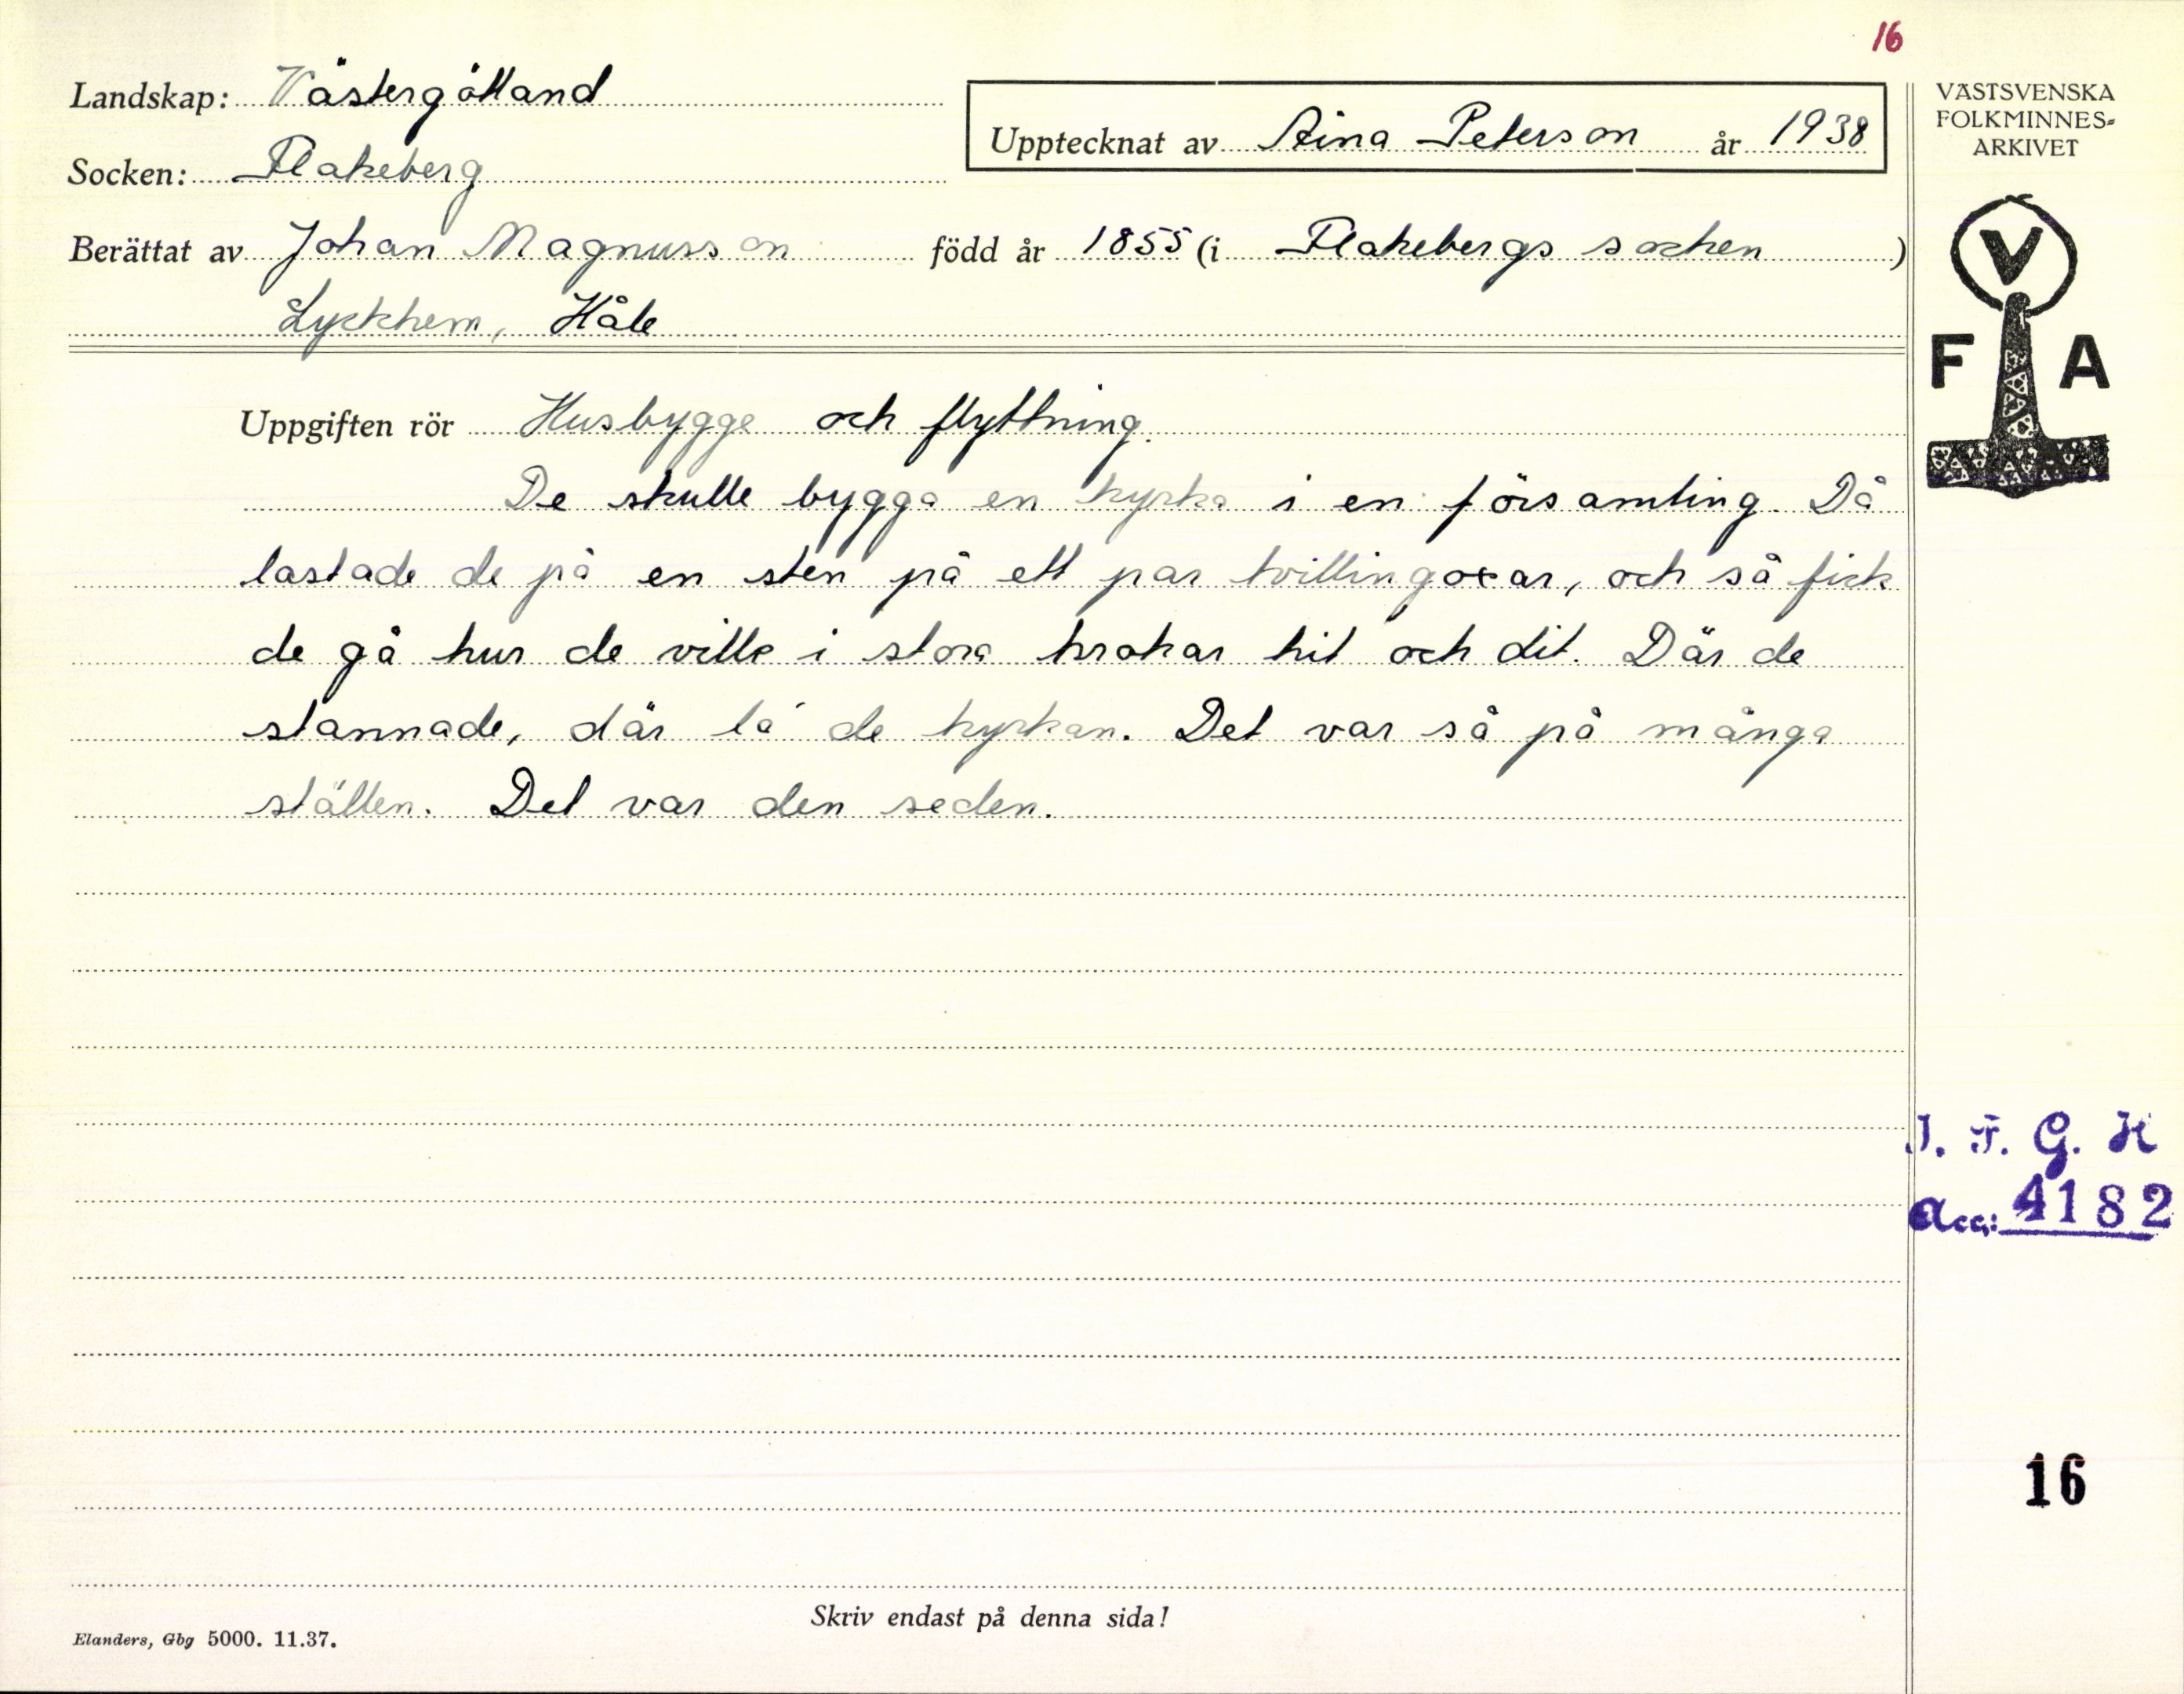 16
Landskap: Västergötland
Upptecknat av Aina Peterson år 1938
Socken: Flakeberg
Berättat av Johan Magnusson född år 1855 (i Flakebergs socken)
Lyckhem, Håle
VÄSTSVENSKA
FOLKMINNES-
ARKIVET
V
F A
Uppgiften rör Husbygge och flyttning.
De skulle bygga en kyrka i en församling. Då
lastade de på en sten på ett par tvillingoxar, och så fick
de gå hur de ville i stora krokar hit och dit. Där de
stannade, där la' de kyrkan. Det var så på många
ställen. Det var den seden.
I. F. G. H
Acc: 4182
16
Skriv endast på denna sida!
Elanders, Gbg 5000. 11.37.